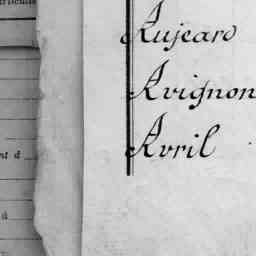 Aujeard
Avignon
Avril
nt à
à